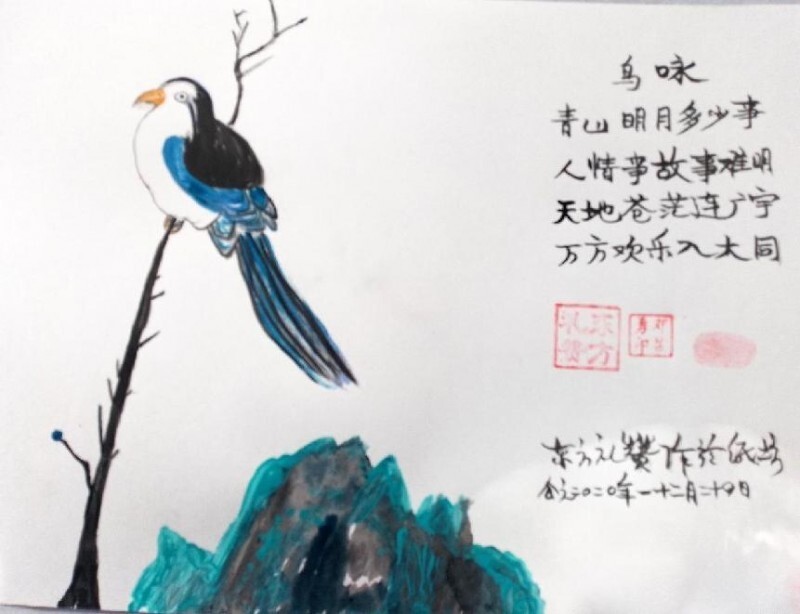 鸟咏
青山明月多少事
人情事故事难明
天地苍茫连广宇
万方欢乐入大同
东方礼赞
东方礼赞作於
公元二〇二〇年十二月二十日